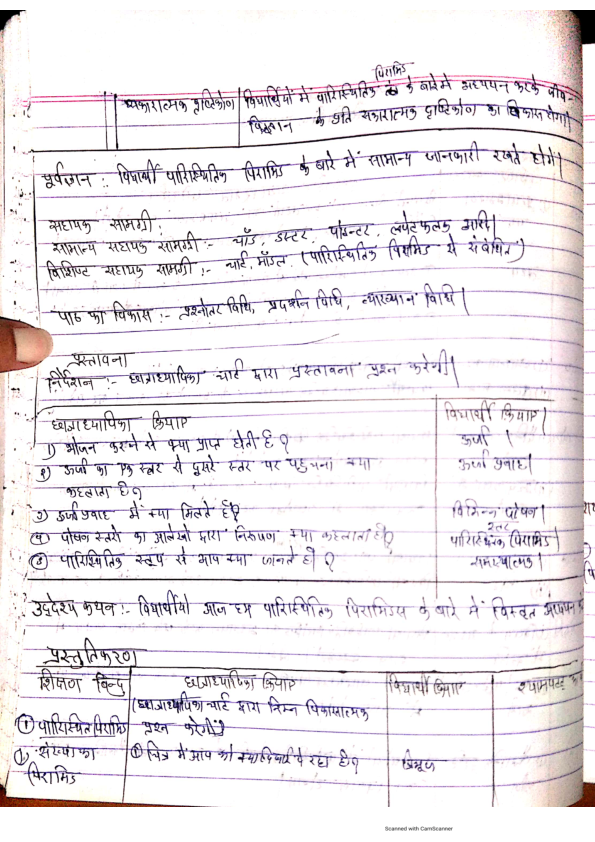 पिरामिड
सकारात्मक दृष्टिकोण विद्यार्थियों में पारिस्थितिक के बारे में अध्ययन करके जीव-
विज्ञान के प्रति सकारात्मक दृष्टिकोण का विकास होगा|
पूर्वज्ञान :- विद्यार्थी पारिस्थितिक पिरामिड के बारे में सामान्य जानकारी रखते होंगे|
सहायक सामग्री :
सामान्य सहायक सामग्री :- चॉक, डस्टर, पॉइन्टर, लपेटफलक आदि|
विशिष्ट सहायक सामग्री :- चार्ट, मॉडल, (पारिस्थितिक पिरामिड से संबंधित)
पाठ का विकास :- प्रश्नोतर विधि, प्रदर्शन विधि, व्याख्यान विधि|
प्रस्तावना
निर्देशन :- छात्राध्यापिका चार्ट द्वारा प्रस्तावना प्रश्न करेगी|
छात्राध्यापिका क्रियाएं विद्यार्थी क्रियाएं|
1) भोजन करने से क्या प्राप्त होती है ? ऊर्जा |
2) ऊर्जा का एक स्तर से दूसरे स्तर पर पहुचना क्या ऊर्जा प्रवाह|
कहलाता है ?
3) ऊर्जा प्रवाह में क्या मिलते है ? विभिन्न पोषण|
स्तर
4) पोषण स्तरो का आलेखो द्वारा निरुपण क्या कहलाता है ? पारिस्थितिक (पिरामिड)
5) पारिस्थितिक स्तूप से आप क्या जानते हो ? समस्यात्मक |
उद्देश्य कथन :- विद्यार्थीयो आज हम पारिस्थितिक पिरामिडस के बारे में विस्तृत अध्ययन
प्रस्तुतिकरण
शिक्षण बिन्दु छात्राध्यापिका क्रियाएं विद्यार्थी क्रियाएं श्यामपट्ट
(छात्राध्यापिका चार्ट द्वारा निम्न विकासात्मक
① पारिस्थितिक पिरामिड प्रश्न करेगी)
संख्या का ① चित्र में आप को क्या दिखाई दे रहा है ? त्रिभुज
पिरामिड
Scanned with CamScanner